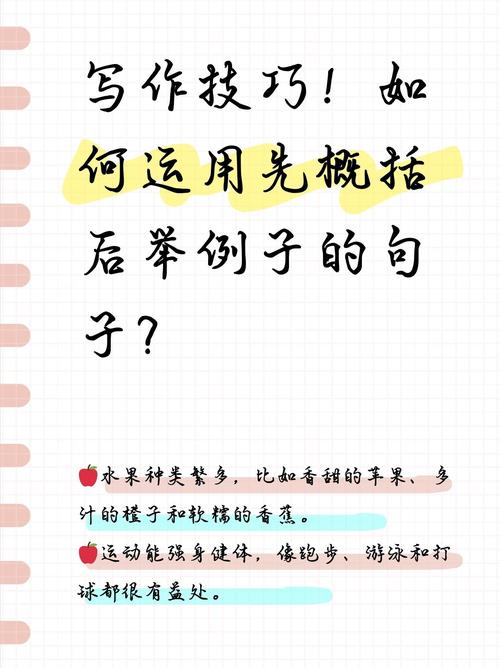 写作技巧！如
何运用先概括
后举例子的句
子？
🍎水果种类繁多，比如香甜的苹果、多
汁的橙子和软糯的香蕉。
🍎运动能强身健体，像跑步、游泳和打
球都很有益处。